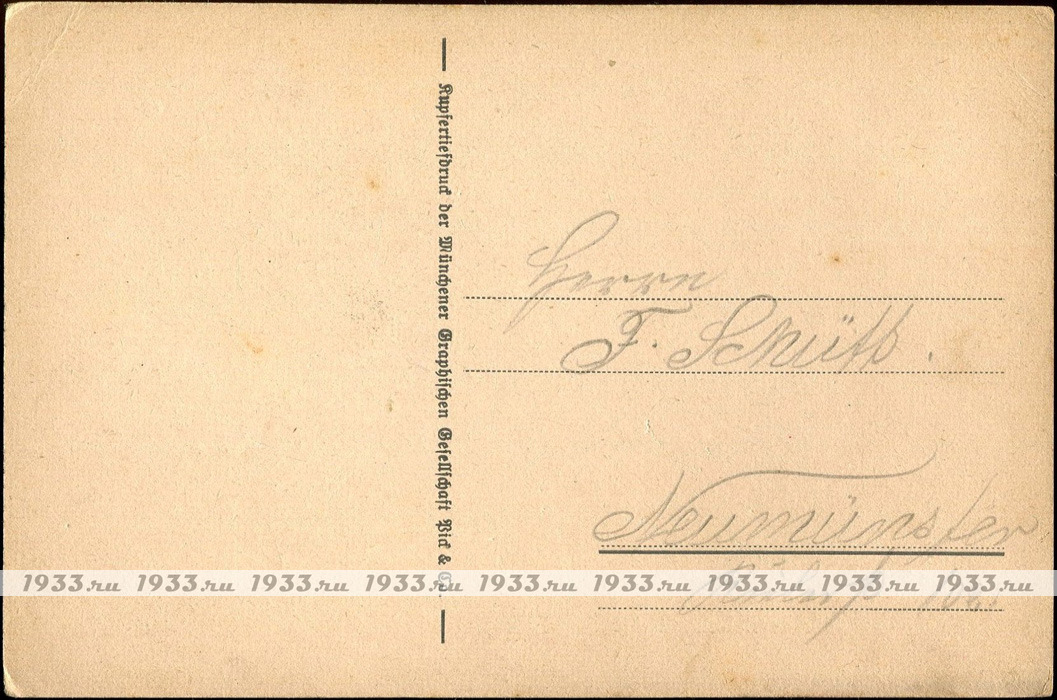 Kupfertiefdruck der Münchener Graphischen Gesellschaft Pick & Co.
Herrn
F. Schütt.
Neumünster
1933.ru 1933.ru 1933.ru 1933.ru 1933.ru 1933.ru 1933.ru 1933.ru 1933.ru